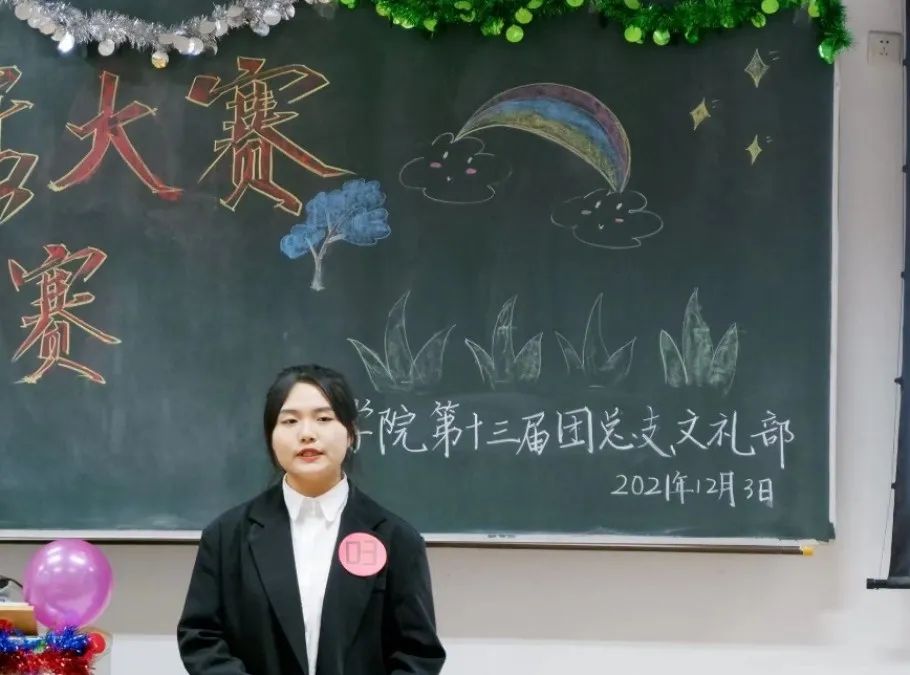 大赛
赛
学院第十三届团总支文礼部
2021年12月3日
03